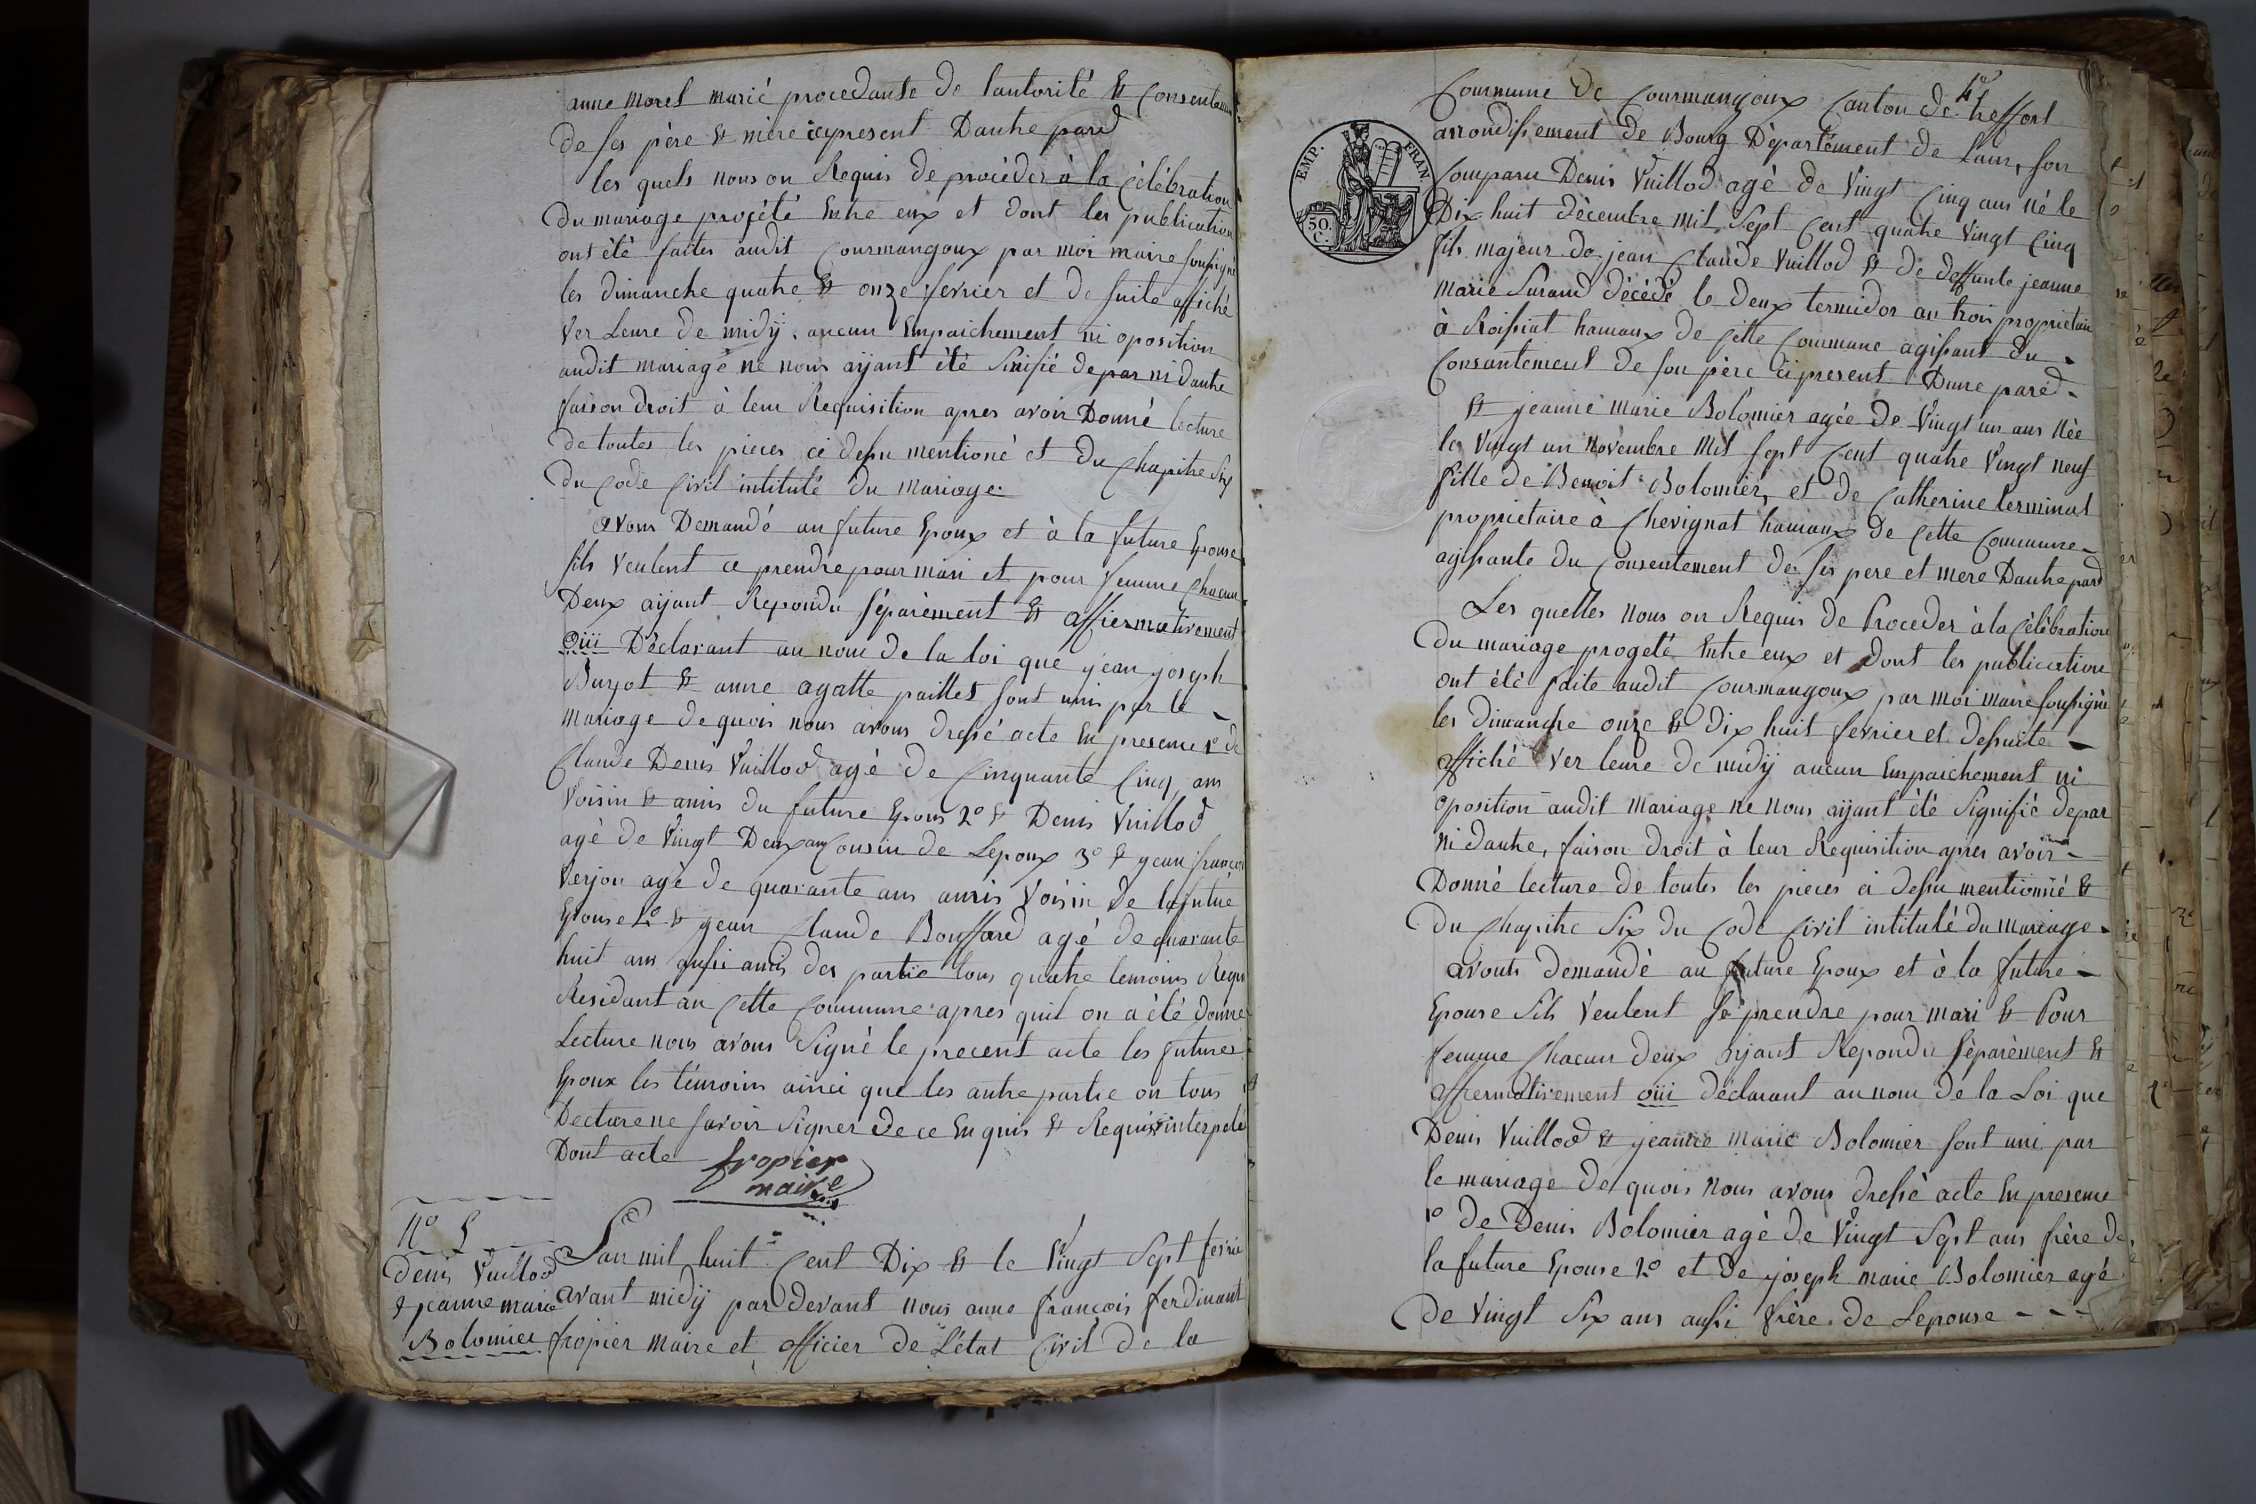 anne morel marié procedante de lautorité et Consentement
de ses père et mère icy present Dautre pard
les quels nous on Requis de procéder à la Célébration
du mariage projété Entre eux et dont les publication
ont été faites audit Courmangoux par moi maire sousigné
les dimanche quatre et onze fevrier et de suite affiché
Ver Leure de midÿ. aucun Empaichement ni oposition
audit mariage ne nous aÿant été Sinifié depar ni dautre
faison droit à leur Requisition apres avoir Donné lecture
de toutes les pieces ci desu mentioné et du Chapitre Six
du Code Civil intitulé du mariage.
avons Demandé au future Epoux et à la future Epouse
sils veulent ce prendre pour mari et pour femme Chacun
Deux aÿant Repondu séparément et affiermativement
oüi Déclarant au nom de la loi que jean joseph
Buyot et anne agatte paillet sont unis par le
mariage de quois nous avons dressé acte En presence 1º de
Claude Denis Vuillod agé de Cinquante Cinq ans
Voisin et amis du future Epous 2º et Denis Vuillod
agé de Vingt Deux an Cousin de Lepoux 3º et jean françois
Verjon agé de quarante ans amis Voisin de la future
Epouse 4º et jean Claude Bouffard agé de quarante
huit ans aussi amis des partie tous quatre temoins Requi
Residant an Cette Commune apres quil on a été donné
Lecture nous avons Signé le precent acte les futures
Epoux les témoins ainci que les autre partie on tous
Declare ne savoir Signer de ce Enquis et Requis interpelé
Dont acte fropier
maire
Nº 5
denis Vuillod
& jeanne marie
Bolomier
Lan mil huit Cent Dix et le Vingt Sept fevrier
avant midÿ par devant nous anne françois ferdinant
fropier maire et officier de L'état Civil de la
EMP. FRAN.
50.
C.
Commune de Courmangoux Canton de treffort
arrondissement de Bourg Département de Lain, son
Comparu Denis Vuillod agé de Vingt Cinq ans né le
Dix huit décembre mil Sept Cent quatre Vingt Cinq
fils majeur de jean Claude Vuillod et de deffunte jeanne
marie Surand décédé le deux termidor an trois proprietaire
à Roissiat hamaux de Cette Commune agissant du
Consantement de son père ci present Dune pared.
et jeanne marie Bolomier agée de Vingt un ans Née
le Vingt un novembre Mil Sept Cent quatre Vingt neuf
fille de Benoit Bolomier, et de Catherine terminet
proprietaire à Chevignat hamaux de Cette Commune
agissante du Consentement de ses pere et mere Dautre pard
Les quelles nous on Requis de Proceder à la Célébration
du mariage progeté Entre eux et Dont les publication
ont été faite audit Courmangoux par moi maire Sousigné
les dimanche onze et dix huit fevrier et desuite
affiché Ver leure de midÿ aucun Empaichement ni
oposition audit mariage ne nous aÿant été Signifié depar
ni dautre, faison droit à leur Requisition apres avoir
Donné lecture de toutes les pieces ci desu mentionné et
du Chapitre Six du Code Civil intitulé du mariage.
avons demandé au future Epoux et à la future
Epouse Sils Veulent Se prendre pour mari et Pour
femme Chacun deux aÿant Repondu Séparément et
affiermativement oüi déclarant au nom de la Loi que
Denis Vuillod et jeanne marie Bolomier sont uni par
le mariage de quois nous avons dressé acte En presence
1º de Denis Bolomier agé de Vingt Sept ans frère de
la future Epouse 2º et de joseph marie Bolomier agé
de Vingt Six ans aussi frère de Lepouse